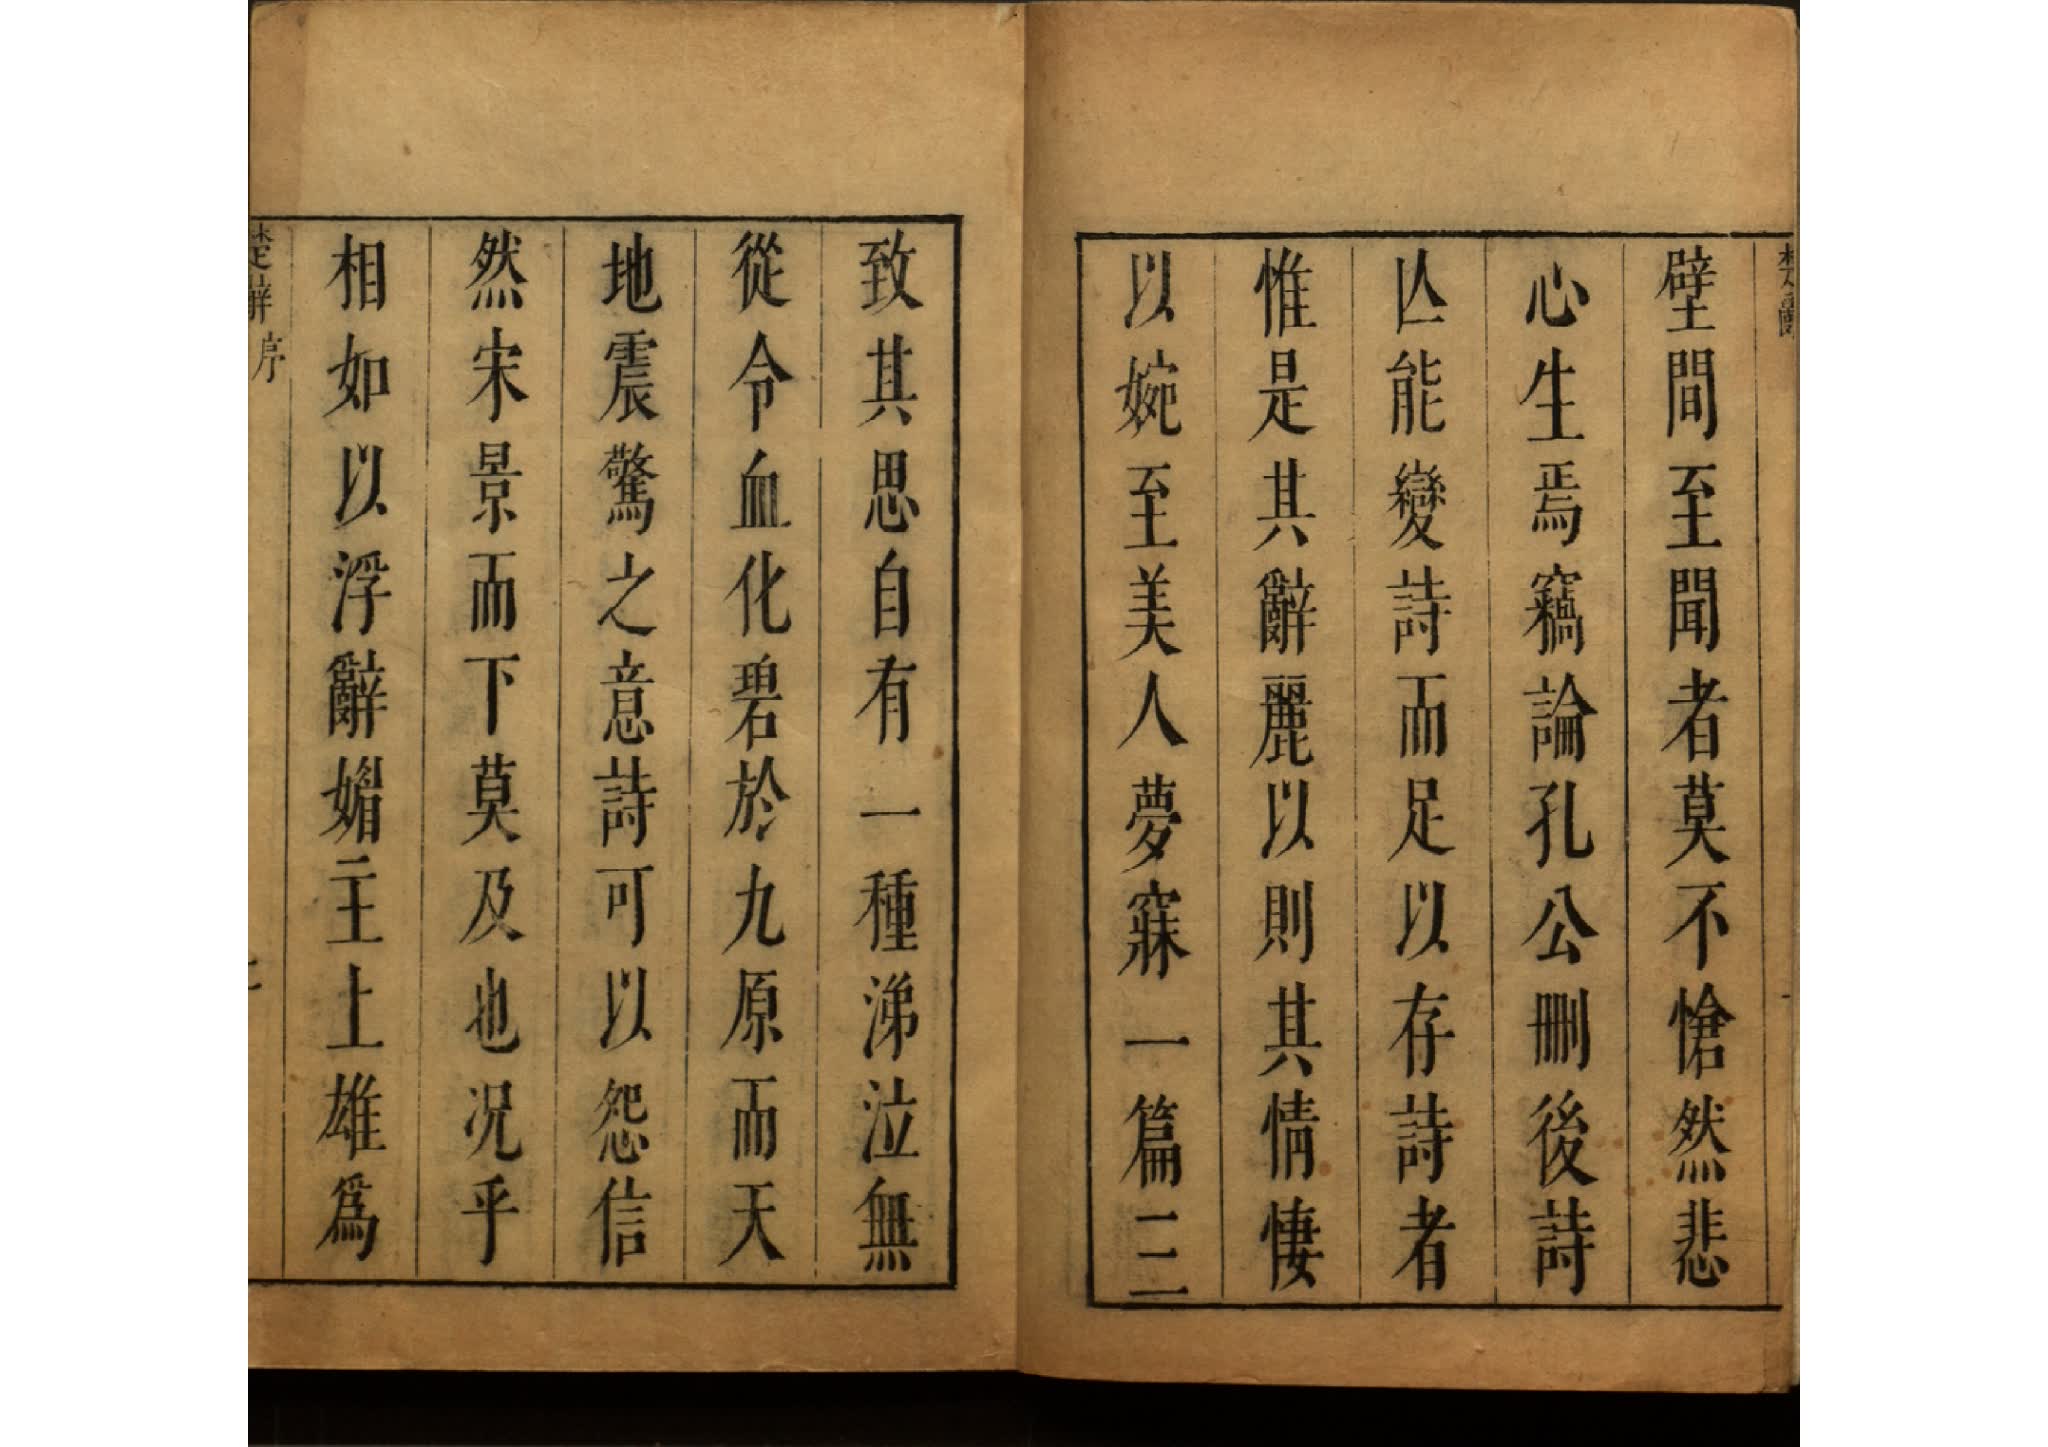 壁間至聞者莫不愴然悲
心生焉竊論孔公刪後詩
亾能變詩而足以存詩者
惟是其辭麗以則其情悽
以婉至美人夢寐一篇三
致其思自有一種涕泣無
從令血化碧於九原而天
地震驚之意詩可以怨信
然宋景而下莫及也况乎
相如以浮辭媚主上雄爲
楚辭序